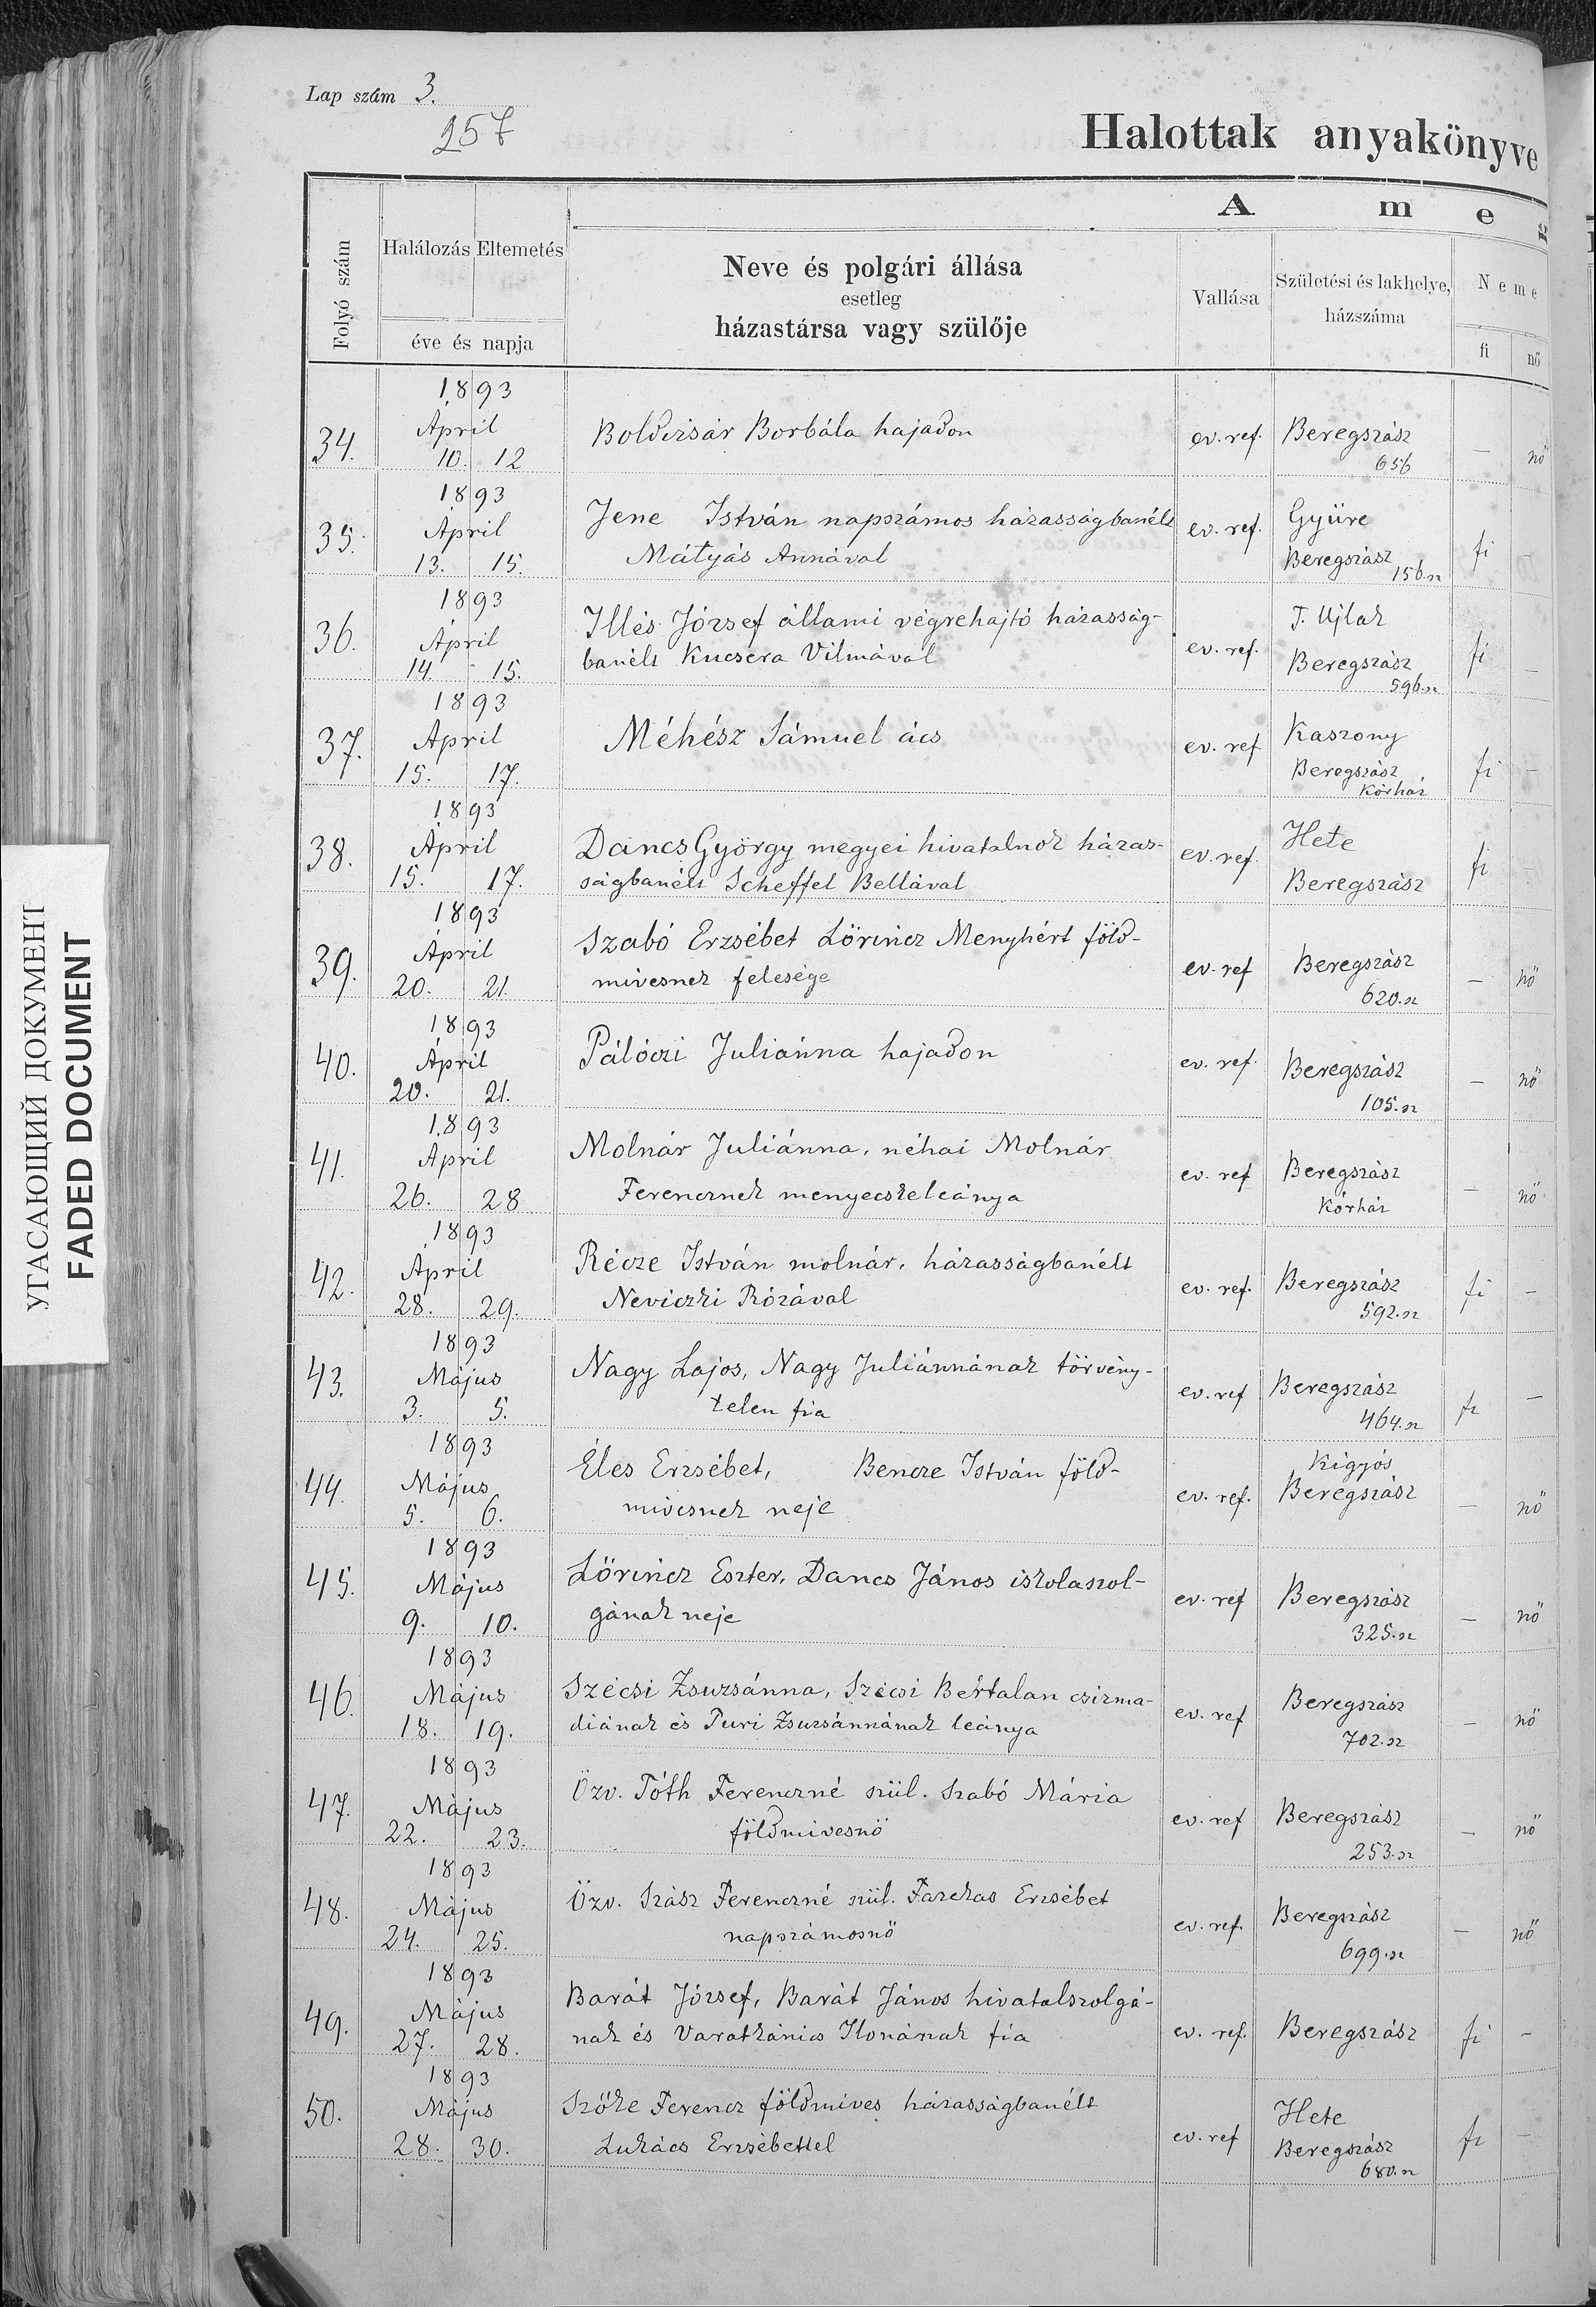 Lap szám 3.
257
Halottak anyakönyve
A m e g
Folyó szám
Halálozás Eltemetés
éve és napja
Neve és polgári állása
esetleg
házastársa vagy szülője
Vallása
Születési és lakhelye,
házszáma
Neme
fi nő
1893
34. Ápril Boldizsár Borbála hajadon ev. ref. Beregszász — nő
10. 12 656
1893
35. Ápril Jene István napszámos házasságbanélt ev. ref. Gyüre fi —
13. 15. Mátyás Annával Beregszász 156. sz
1893
36. Ápril Illés József állami végrehajtó házasság- ev. ref. T. Ujlak fi —
14 15. banélt Kucsera Vilmával Beregszász
596. sz
1893
37. Ápril Méhész Sámuel ács ev. ref Kaszony fi —
15. 17. Beregszász
Kórház
1893
38. Ápril Dancs György megyei hivatalnok házas- ev. ref. Hete fi
15. 17. ságbanélt Scheffel Bellával Beregszász
1893
39. Ápril Szabó Erzsébet Lőrincz Menyhért föld- ev. ref Beregszász — nő
20. 21. mivesnek felesége 620. sz
1893
40. Ápril Pálóczi Juliánna hajadon ev. ref. Beregszász — nő
20. 21. 105. sz
1893
41. Ápril Molnár Juliánna, néhai Molnár ev. ref Beregszász — nő
26. 28 Ferencznek menyecskeleánya Kórház
1893
42. Ápril Récze István molnár, házasságbanélt ev. ref. Beregszász fi —
28. 29. Neviczki Rózával 592. sz
1893
43. Május Nagy Lajos, Nagy Juliánnának törvény- ev. ref Beregszász fi —
3. 5. telen fia 464. sz
1893
44. Május Éles Erzsébet, Bencze István föld- ev. ref. Kigyós — nő
5. 6. mivesnek neje Beregszász
1893
45. Május Lőrincz Eszter, Dancs János iskolaszol- ev. ref Beregszász — nő
9. 10. gának neje 325. sz
1893
46. Május Szécsi Zsuzsánna, Szécsi Bertalan csizma- ev. ref Beregszász — nő
18. 19. diának és Puri Zsuzsánnának leánya 702. sz
1893
47. Május Özv. Tóth Ferenczné szül. Szabó Mária ev. ref Beregszász — nő
22. 23. földmivesnő 253. sz
1893
48. Május Özv. Szász Ferenczné szül. Farkas Erzsébet ev. ref. Beregszász — nő
24. 25. napszámosnő 699. sz
1893
49. Május Barát József, Barát János hivatalszolgá- ev. ref. Beregszász fi —
27. 28. nak és Varatkánics Ilonának fia
1893
50. Május Szőke Ferencz földmives házasságbanélt ev. ref Hete fi —
28. 30. Lukács Erzsébettel Beregszász
680. sz
УГАСАЮЩИЙ ДОКУМЕНТ
FADED DOCUMENT